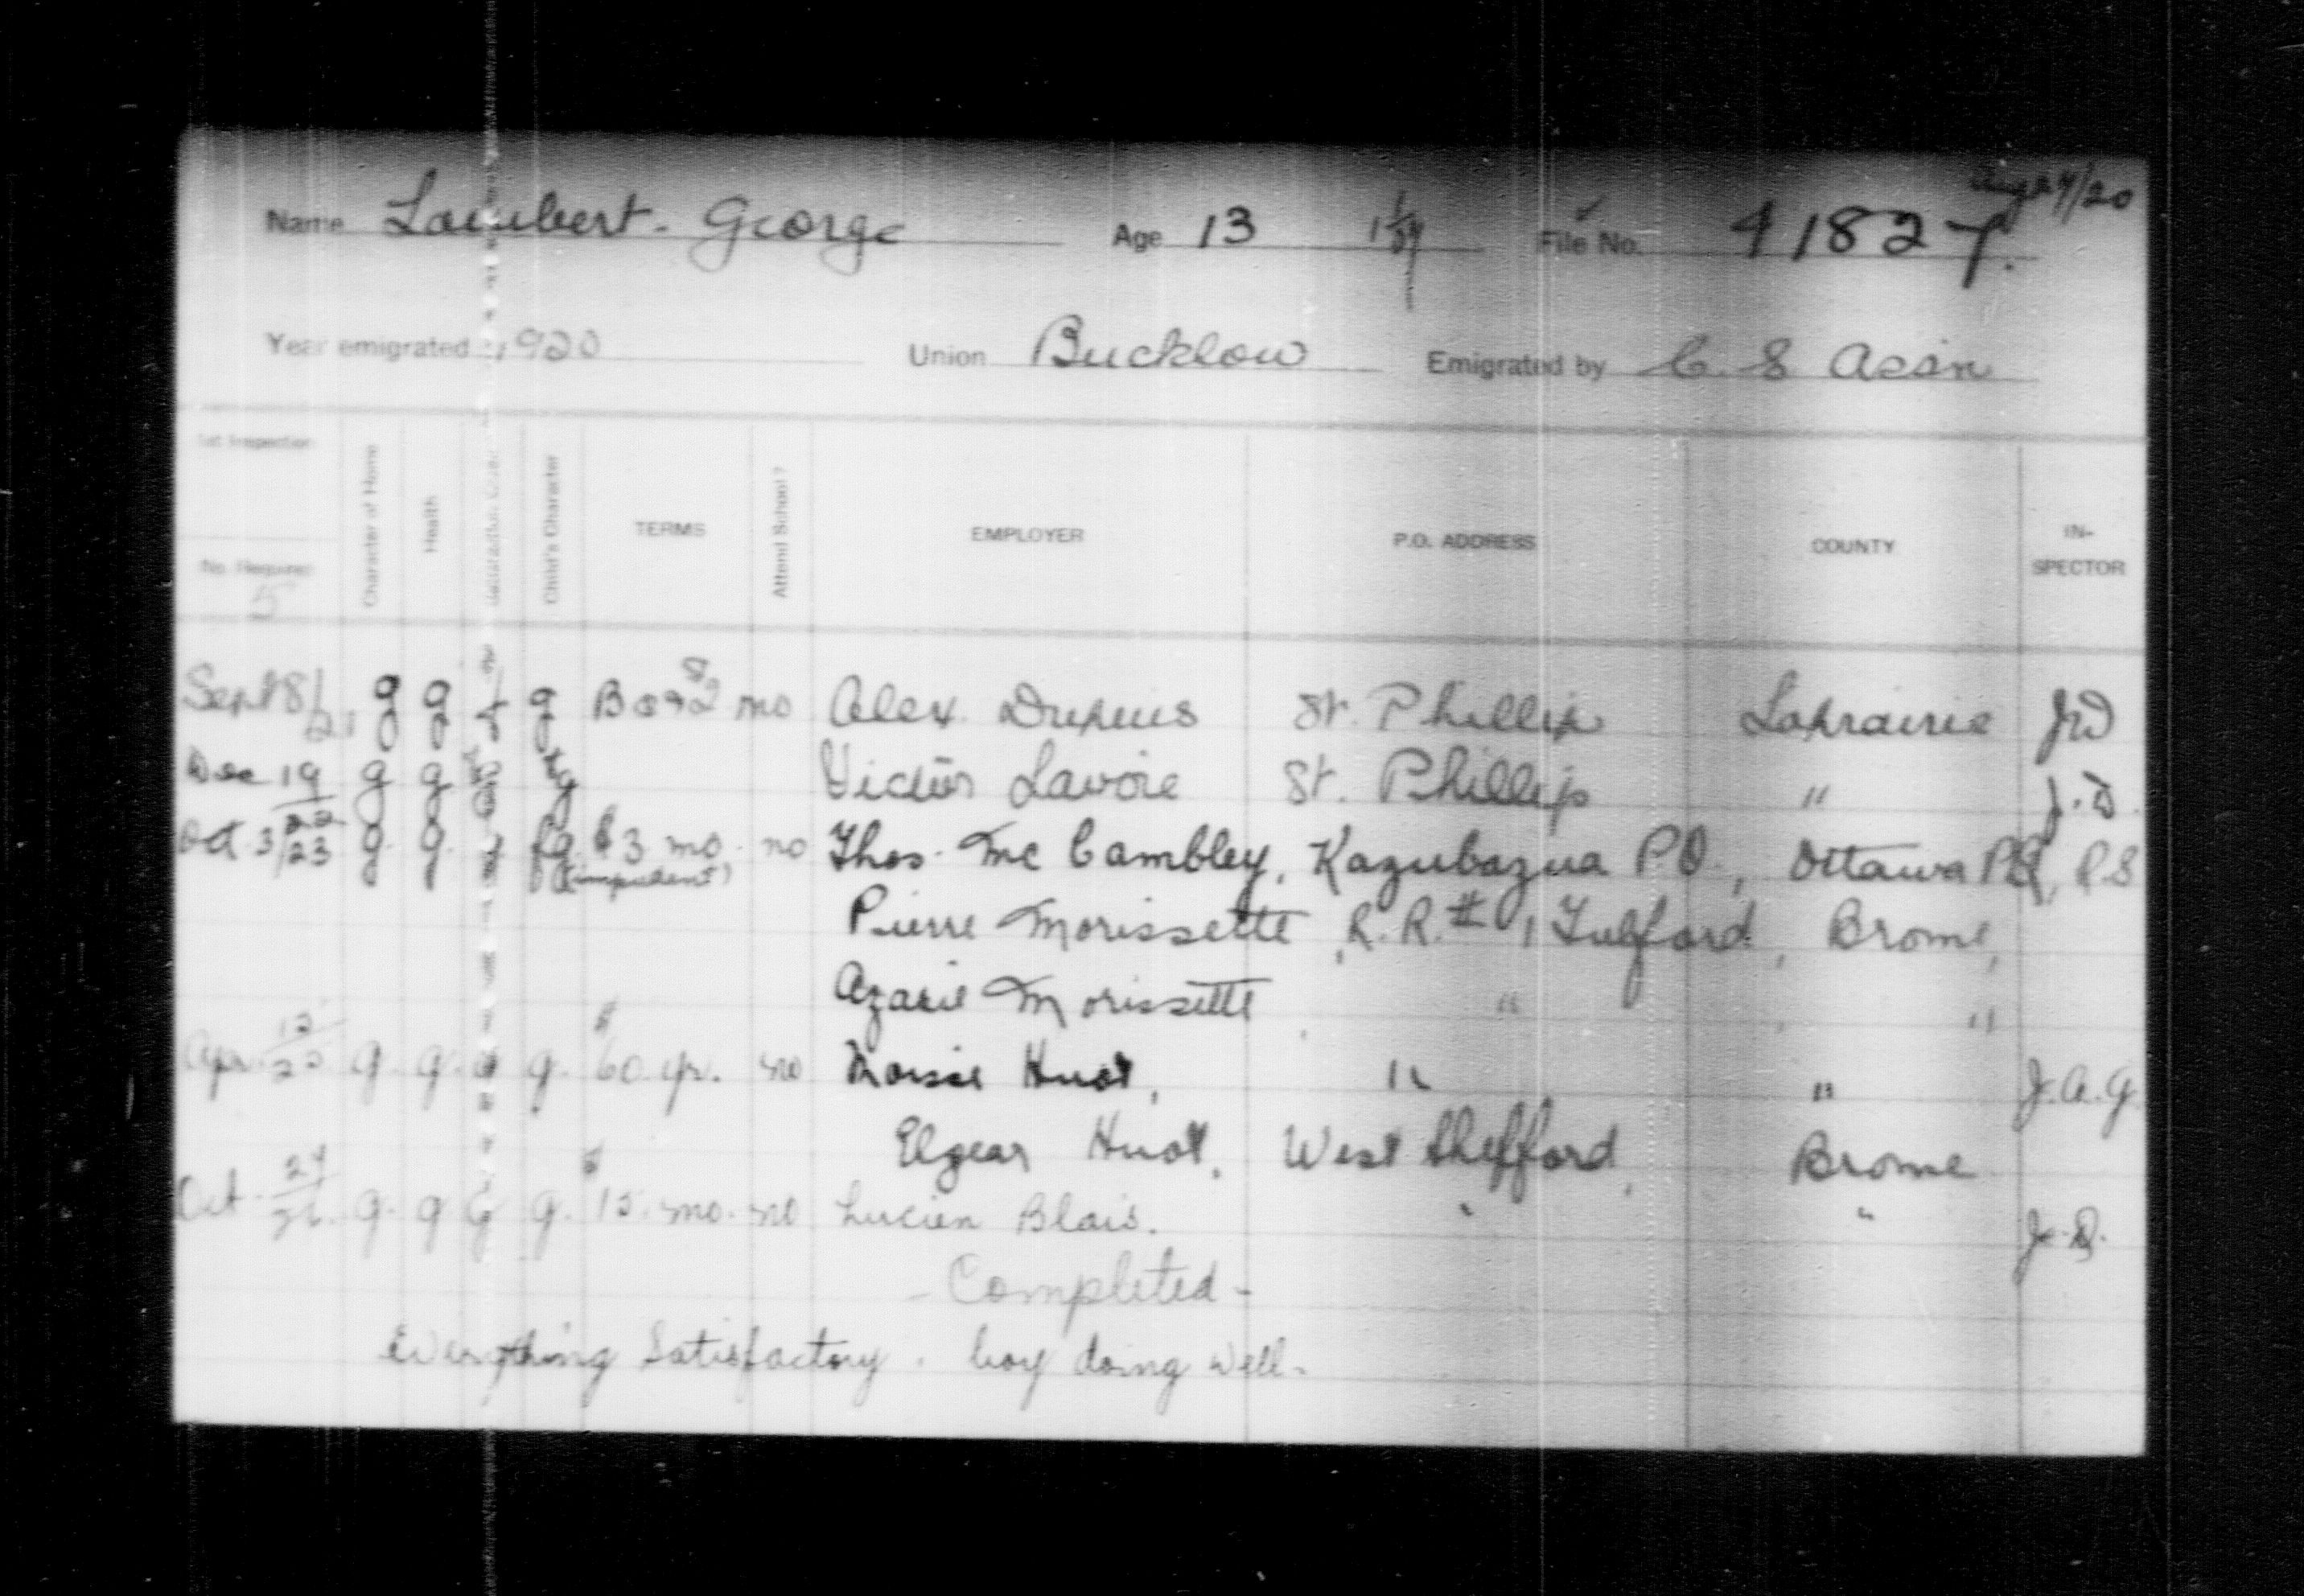 Aug 24/20
Name Lambert - George Age 13 File No. 41827
Year emigrated 1920 Union Bucklow Emigrated by C. E. Assn
1st Inspection Character of Home Health Child's Character TERMS Attend School? EMPLOYER P.O. ADDRESS COUNTY IN-SPECTOR
No. Required
5
Sept 8/21 g g f g B & $2 mo Alex Dupuis St. Phillip Laprairie JD
Dec 19/22 g g g fg Victor Lavoie St. Phillip " J.D.
Oct 3/23 g. g. fg $3 mo. no Thos. Mc Cambley, Kazubazua P.O., Ottawa P.Q., P.S
(impudent)
Pierre Morissette, R.R. # 1 Fulford, Brome,
Azarie Morissette, " , "
Apr. g. g. g g. $60 yr. no Moise Huot, " " J.A.G.
Elgear Huot, West Shefford, Brome
Oct. 24/26. g. g g g. $15. mo. no Lucien Blais. " " J.D.
- Completed -
Everything Satisfactory. boy doing well.